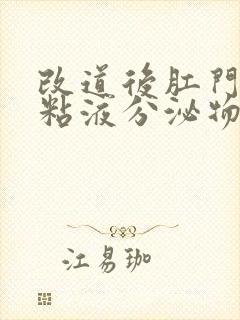 改道後肛門
粘液分泌物
江易珈